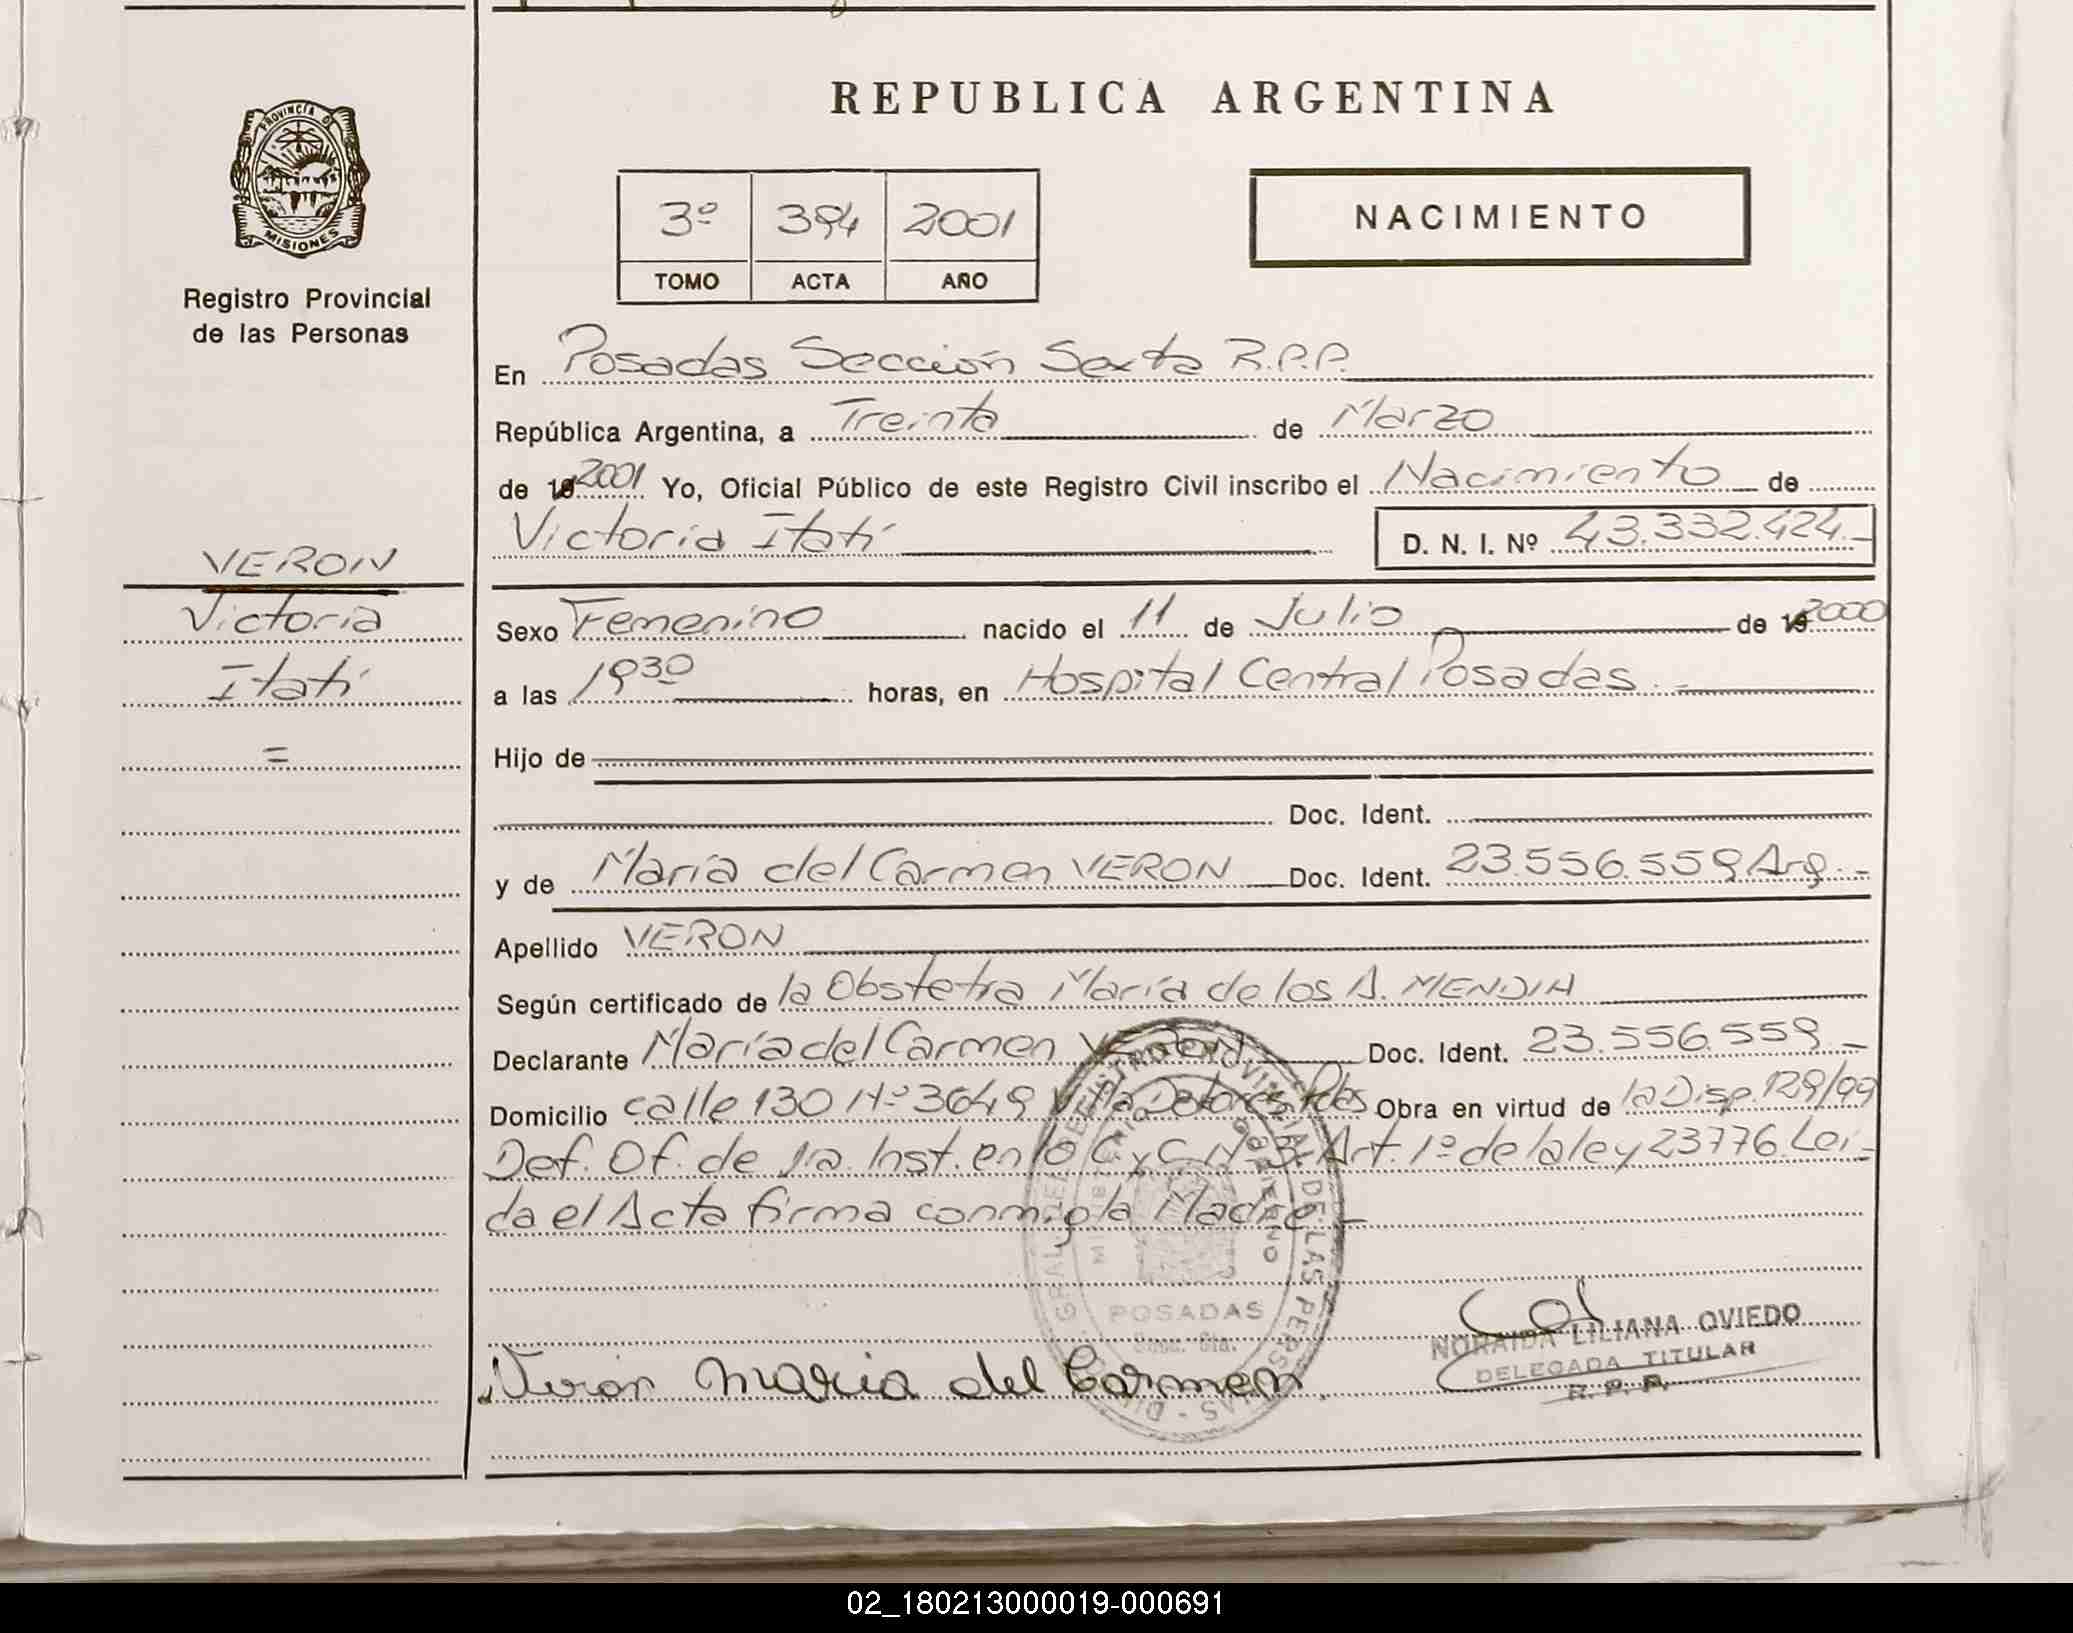 REPUBLICA ARGENTINA
PROVINCIA DE MISIONES
Registro Provincial
de las Personas
3º 394 2001
TOMO ACTA AÑO
NACIMIENTO
En Posadas Sección Sexta R.P.P.
República Argentina, a Treinta de Marzo
de 19 2001 Yo, Oficial Público de este Registro Civil inscribo el Nacimiento de
Victoria Itatí D. N. I. Nº 43.332.424.-
VERON
Victoria
Itatí
=
Sexo Femenino nacido el 11 de Julio de 19 2000
a las 19 30 horas, en Hospital Central Posadas.-
Hijo de
Doc. Ident.
y de María del Carmen VERON Doc. Ident. 23.556.559 Arg.-
Apellido VERON
Según certificado de la Obstetra María de los A. MENDIA
Declarante María del Carmen VERON Doc. Ident. 23.556.559 -
Domicilio calle 130 Nº 3649 Villa Dolores Pdas Obra en virtud de la Disp. 129/99
Def. Of. de 1ra. Inst. en lo C. y C. Nº 3. Art. 1º de la ley 23776. Leí-
da el Acta firma conmigo la Madre -
POSADAS
Secc. 6ta.
NORAIDA LILIANA OVIEDO
DELEGADA TITULAR
R. P. P.
Veron maria del Carmen
02_180213000019-000691